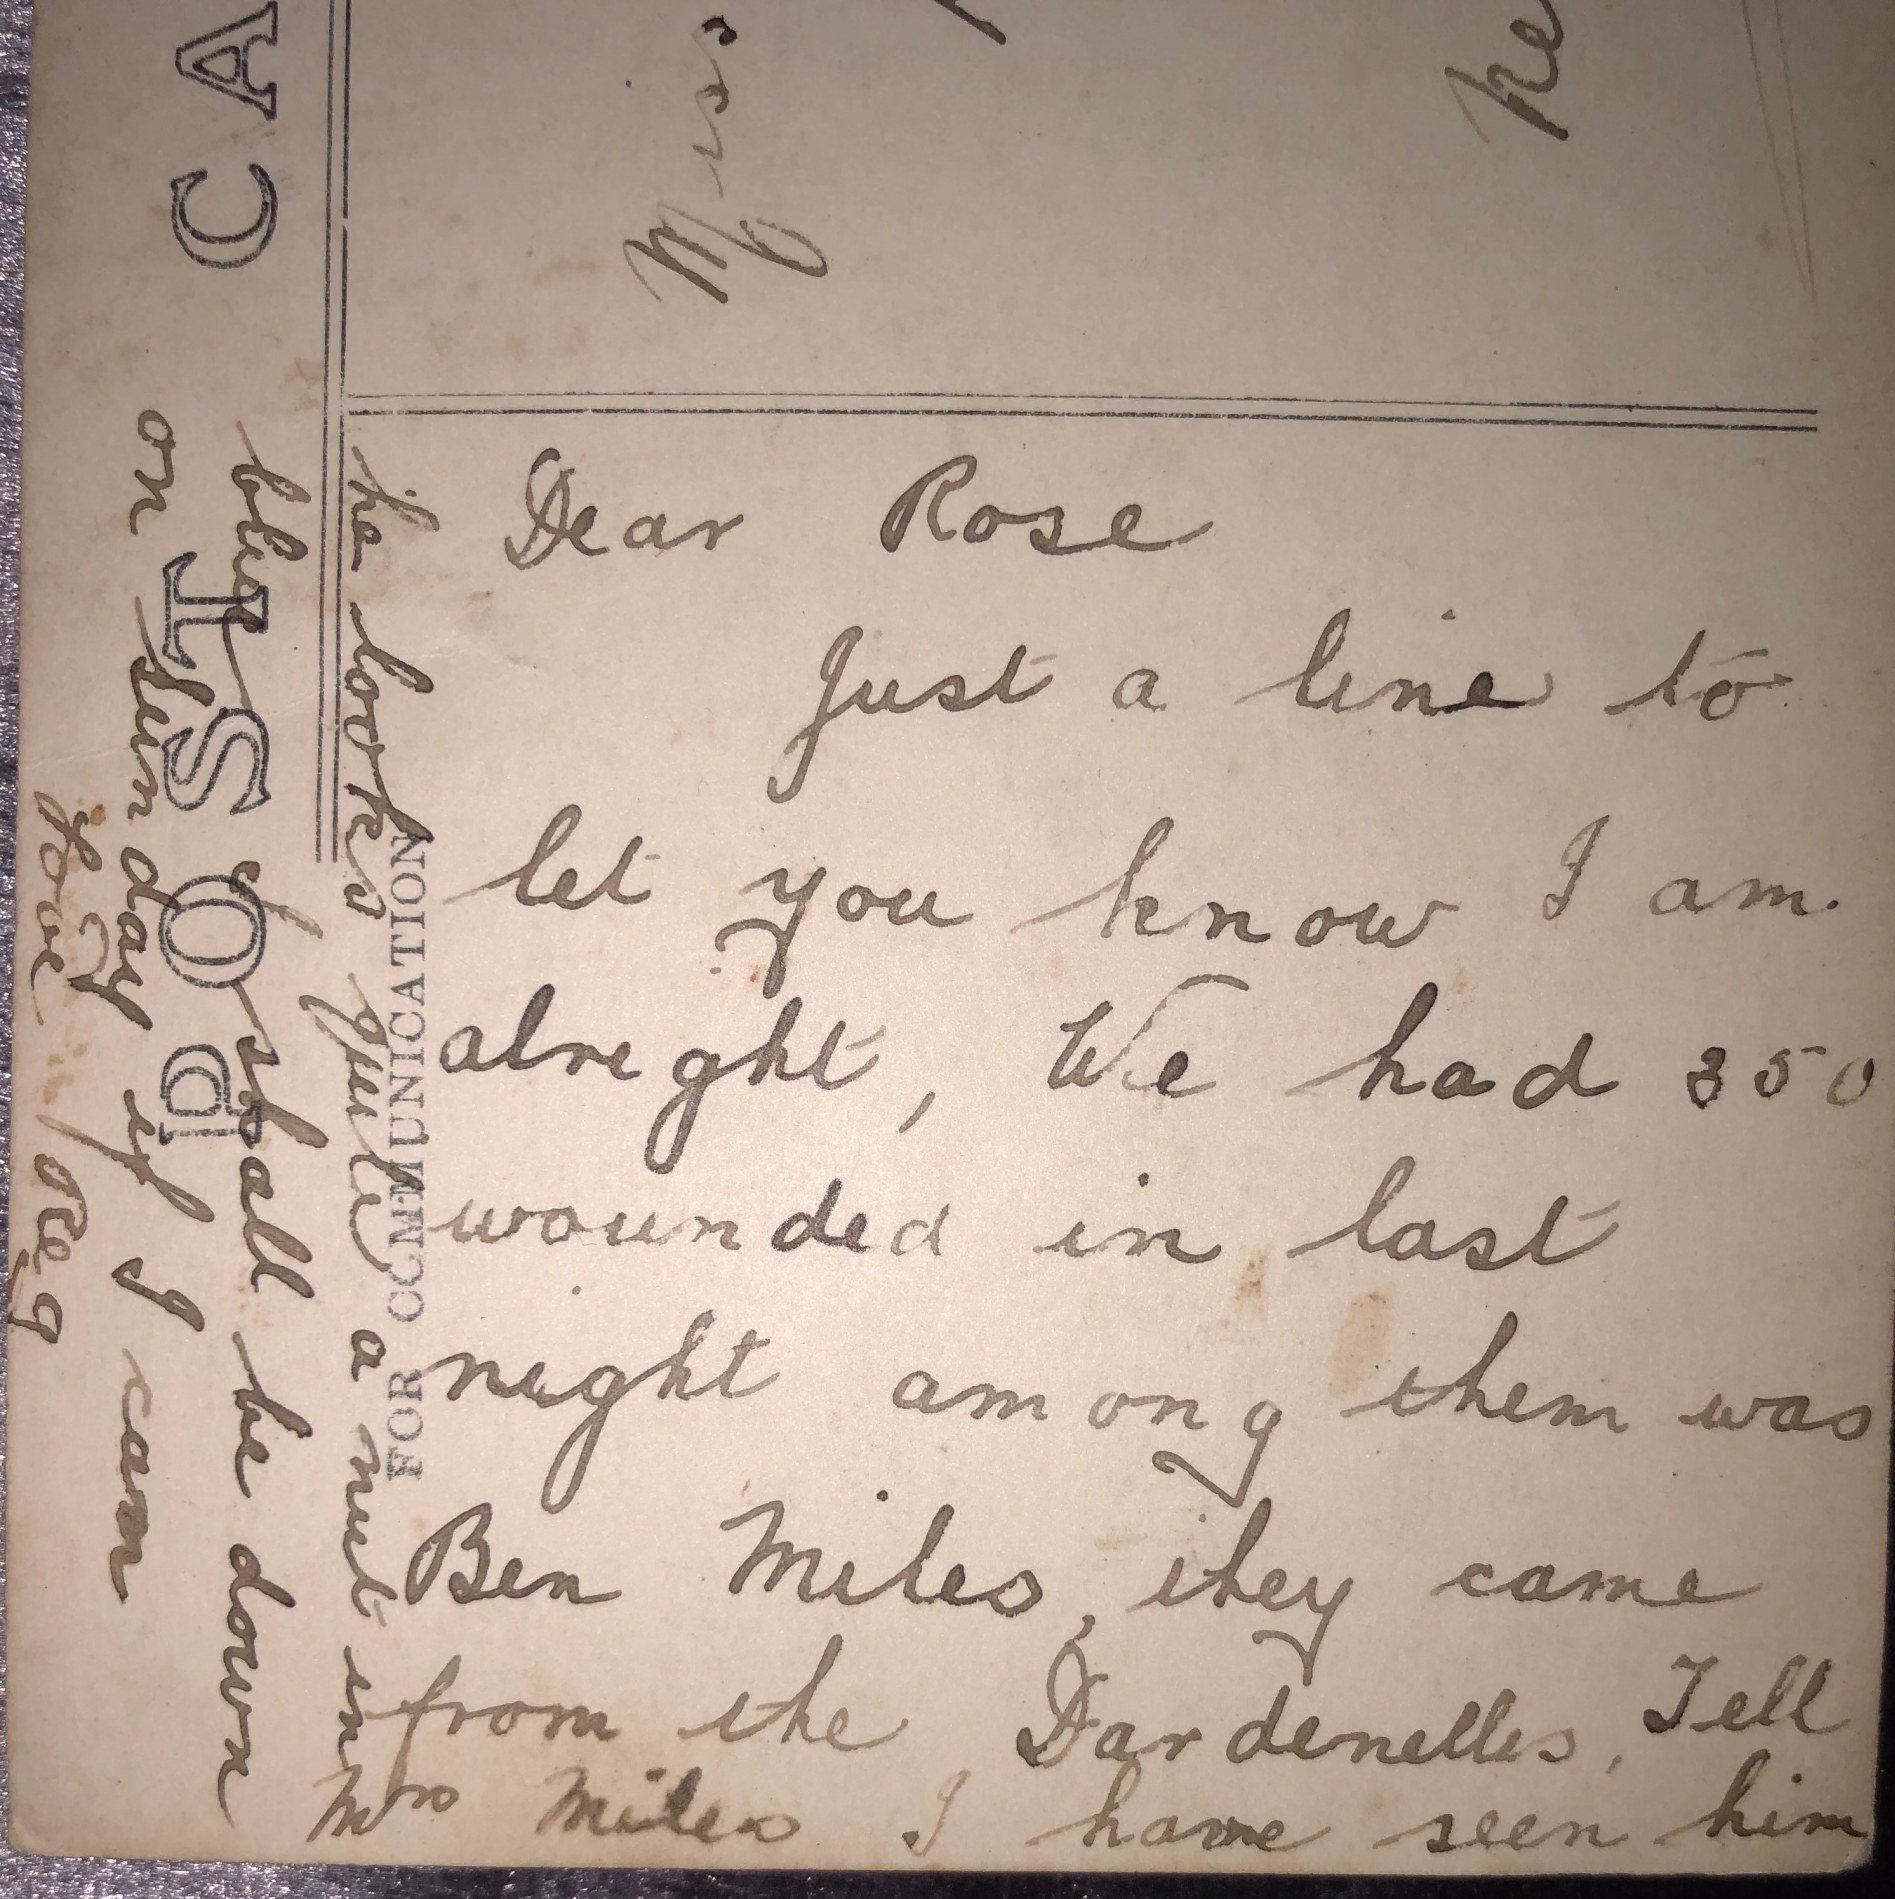 POST CA
FOR COMMUNICATION
Miss
Ke
Dear Rose
Just a line to
let you know I am
alright, We had 350
wounded in last
night among them was
Ben Miles, they came
from the Dardenelles, Tell
Mrs Miles I have seen him
he looks quite a nut in
blue I shall be down
on Sunday if I can
Love Reg